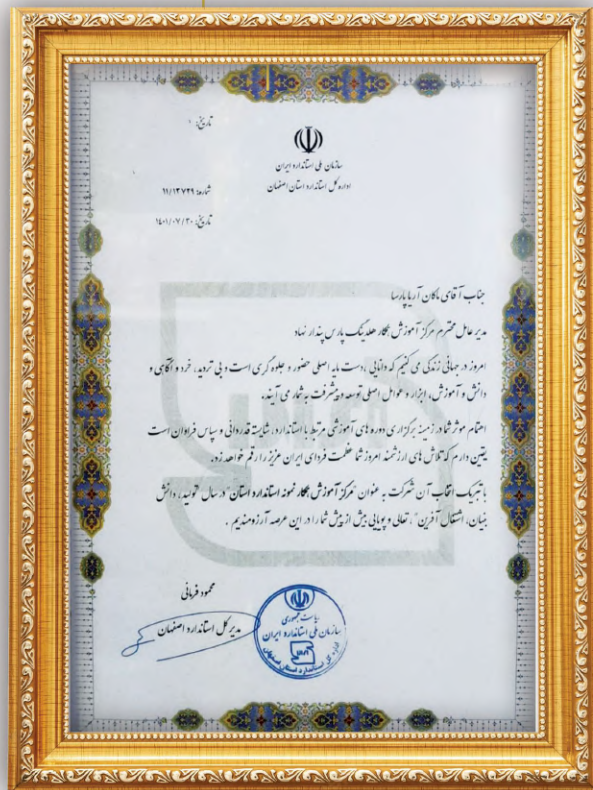 تاریخ:
سازمان ملی استاندارد ایران
اداره کل استاندارد استان اصفهان
شماره: ۱۱/۱۳۷۲۹
تاریخ: ۱۴۰۱/۰۷/۲۰
جناب آقای ماکان آریا پارسا
مدیر عامل محترم مرکز آموزش همکار هلدینگ پارس پندار نهاد
امروز در جهانی زندگی می کنیم که دانایی ، دست مایه اصلی حضور و جلوه گری است و بی تردید، خرد و آگاهی و
دانش و آموزش، ابزار و عوامل اصلی توسعه و پیشرفت به شمار می آیند.
اهتمام موثر شما در زمینه برگزاری دوره های آموزشی مرتبط با استاندارد، شایسته قدردانی و سپاس فراوان است
یقین دارم که تلاش های ارزشمند امروز شما عظمت فردای ایران عزیز را رقم خواهد زد.
با تبریک انتخاب آن شرکت به عنوان "مرکز آموزش همکار نمونه استاندارد استان" در سال "تولید، دانش
بنیان، اشتغال آفرین" ، تعالی و پویایی بیش از پیش شما را در این عرصه آرزومندیم .
محمود فرمانی
مدیر کل استاندارد اصفهان
ریاست جمهوری
سازمان ملی استاندارد ایران
اداره کل استاندارد استان اصفهان